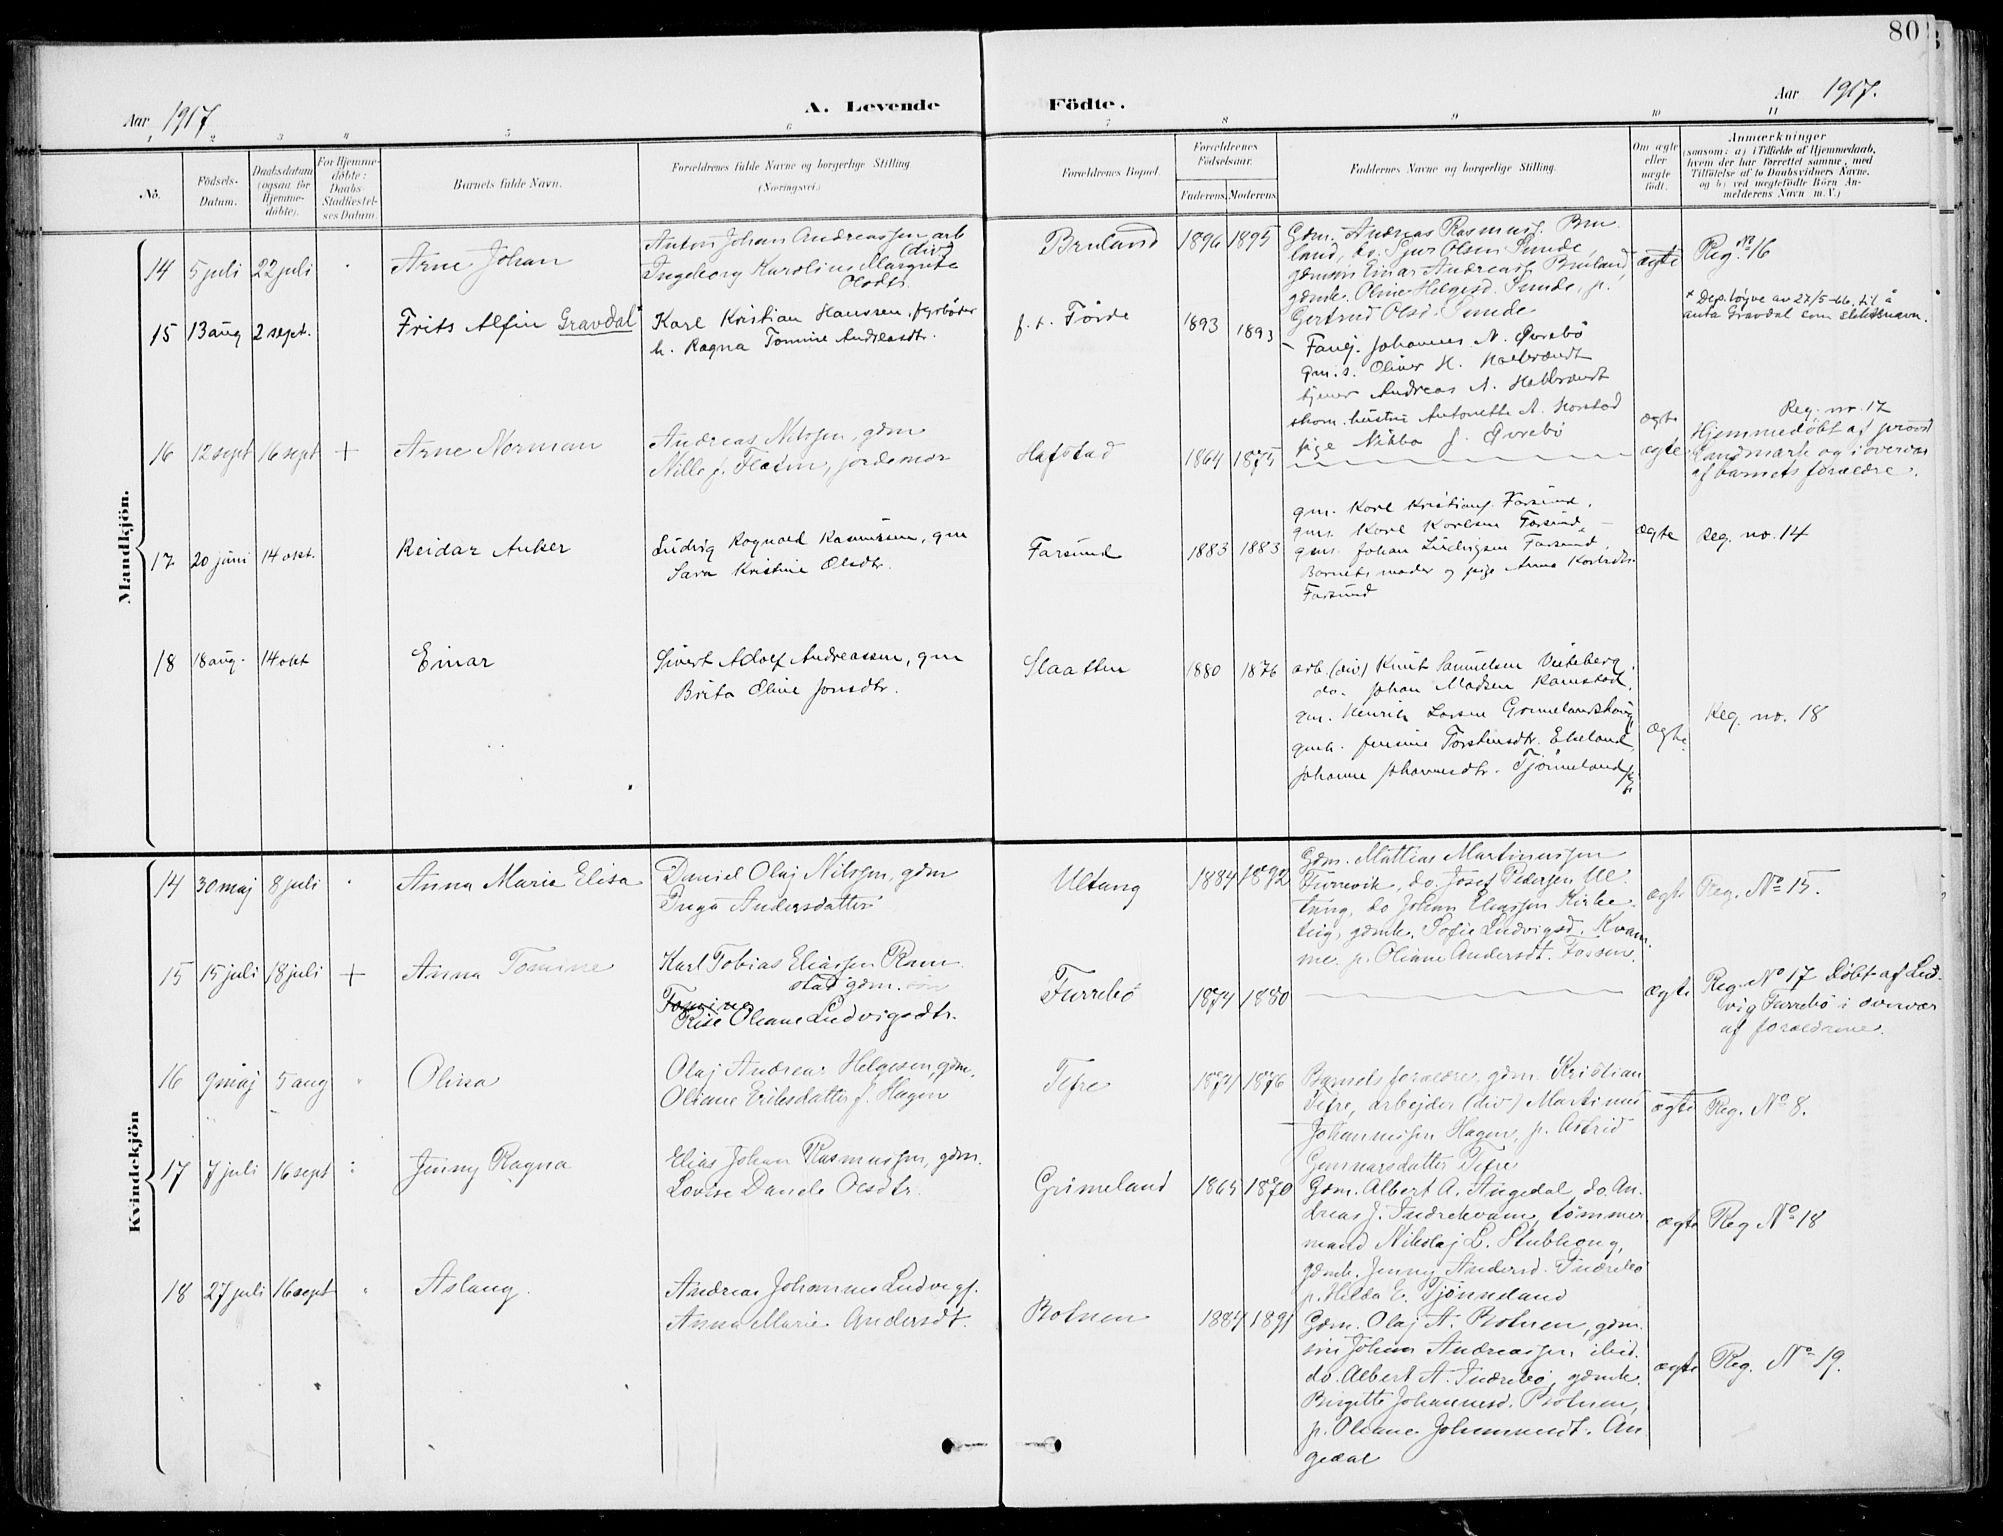 80
Aar 1917
A. Levende Födte.
Aar 1917.
1 2 3 4 5 6 7 8 9 10 11
No.
Födsels-
Datum.
Daabsdatum
(ogsaa for
Hjemme-
döbte).
For Hjemme-
döbte:
Daabs-
Stadfæstel-
ses Datum.
Barnets fulde Navn.
Forældrenes fulde Navne og borgerlige Stilling.
(Næringsvei.)
Forældrenes Bopæl.
Forældrenes
Födselsaar.
Faderens. Moderens.
Faddernes Navne og borgerlige Stilling.
Om ægte
eller
uægte
födt.
Anmærkninger
(saasom: a) i Tilfælde af Hjemmedaab,
hvem der har forrettet samme, med
Tilföielse af to Daabsvidners Navne.
og b) ved uægtefödte Börn An-
melderens Navn m. V.)
Mandkjön.
14 5 juli 22 juli Arne Johan
Anton Johan Andreassen arb
(div)
Ingeborg Karoline Margrete
Olsdtr.
Bruland 1896 1895
Gdm. Andreas Rasmusf. Bru
land, do. Sjur Olsen Sunde,
gdmsøn Einar Andreasf. Bruland,
gdmk. Oline Helgesd. Sunde, p.
Gertrud Olsd. Sunde
ægte
Reg. No 16
15 13 aug 2 sept. Frits Alfin Gravdal x
Karl Kristian Hanssen, fyrbøter
h. Ragna Tomine Andreasdtr.
f. t. Førde 1893 1893
Fang. Johannes N. Øvrebö
gm. s. Oliver H. Halbrendt
tjener Andreas A. Halbrendt
skom. hustru Antonette A. Horstad
pige Nikka J. Øvrebö
ægte
x Dep. løyve av 27/5-66, til å
anta Gravdal som slektsnavn.
Reg. nr. 17
16 12 sept 16 sept + Arne Norman
Andreas Nilssen, gdm
Nille f. Flaten, jordemor
Hafstad 1864 1875
ægte
Hjemmedøbt af provst
Landmark og i overvær
af barnets forældre.
17 20 juni 14 okt. Reidar Anker
Ludvig Ragnald Rasmussen, gm
Sara Kristine Olsdtr.
Farsund 1883 1883
gm. Karl Kristians. Farsund,
gm. Karl Karlsen Farsund,
gm. Johan Ludvigsen Farsund,
Barnets moder og pige Anna Karlsdtr.
Farsund
ægte
Reg. no. 14
18 18 aug. 14 okt Einar
Sivert Adolf Andreassen, gm
Brita Oline Jonsdtr.
Slaatten 1880 1876
arb. (div) Knut Samuelsen Vieteberg,
do. Johan Madsen Ramstad,
gm. Henrik Larsen Grimelandshaug,
gmh. Jensine Torstensdtr. Ekeland,
Johanne Johannesdtr. Tjønneland,
ægte
Reg. no. 18
Kvindekjön
14 30 maj 8 juli Anna Marie Elisa
Daniel Olaj Nilssen, gdm
Inga Andersdatter
Ultang 1884 1892
Gdm. Mattias Martinussen
Furrevik, do. Josef Pedersen Ul
tang, do Johan Eliassen Kirke
teig, gdmk. Sofie Ludvigsd. Kvam
me, p. Oliane Andersdt. Farsun.
ægte
Reg. No 15.
15 15 juli 18 juli + Anna Tomine
Karl Tobias Eliassen Ram
stad gdm.
Oliane Ludvigsdtr.
Furrebø 1874 1880
ægte
Reg. No 17 Døbt af Lud
vig Furrebø i overvær
af forældrene.
16 9 maj 5 aug Olina
Olaj Andreas Helgesen, gdm.
Oliane Eriksdatter f. Hagen
Tefre 1874 1876
Barnets forældre, gdm. Kristian
Tefre, arbejder (div) Martinus
Johannessen Hagen, p. Astrid
Gunnarsdatter Tefre
ægte
Reg. No 8.
17 7 juli 16 sept Jenny Ragna
Elias Johan Rasmussen, gdm.
Lovise Danele Olsdtr.
Grimeland 1865 1870
Gdm. Albert A. Angedal, do. An
dreas J. Indrekvam, tømmer
mand Nikolaj L. Stubhoug,
gdmk. Jenny Andersd. Indrebø
p. Hilda E. Tjønneland
ægte
Reg No 18
18 27 juli 16 sept Aslaug.
Andreas Johannes Ludvigs.
Anna Marie Andersdt.
Botnen 1884 1891
Gdm. Olaj A. Botnen, gdm.
søn Johan Andreassen ibid.
do. Albert A. Indrebø, gdmk.
Birgitte Johannesd. Botnen,
p. Oliane Johannesdt. An
gedal
ægte
Reg. No 19.